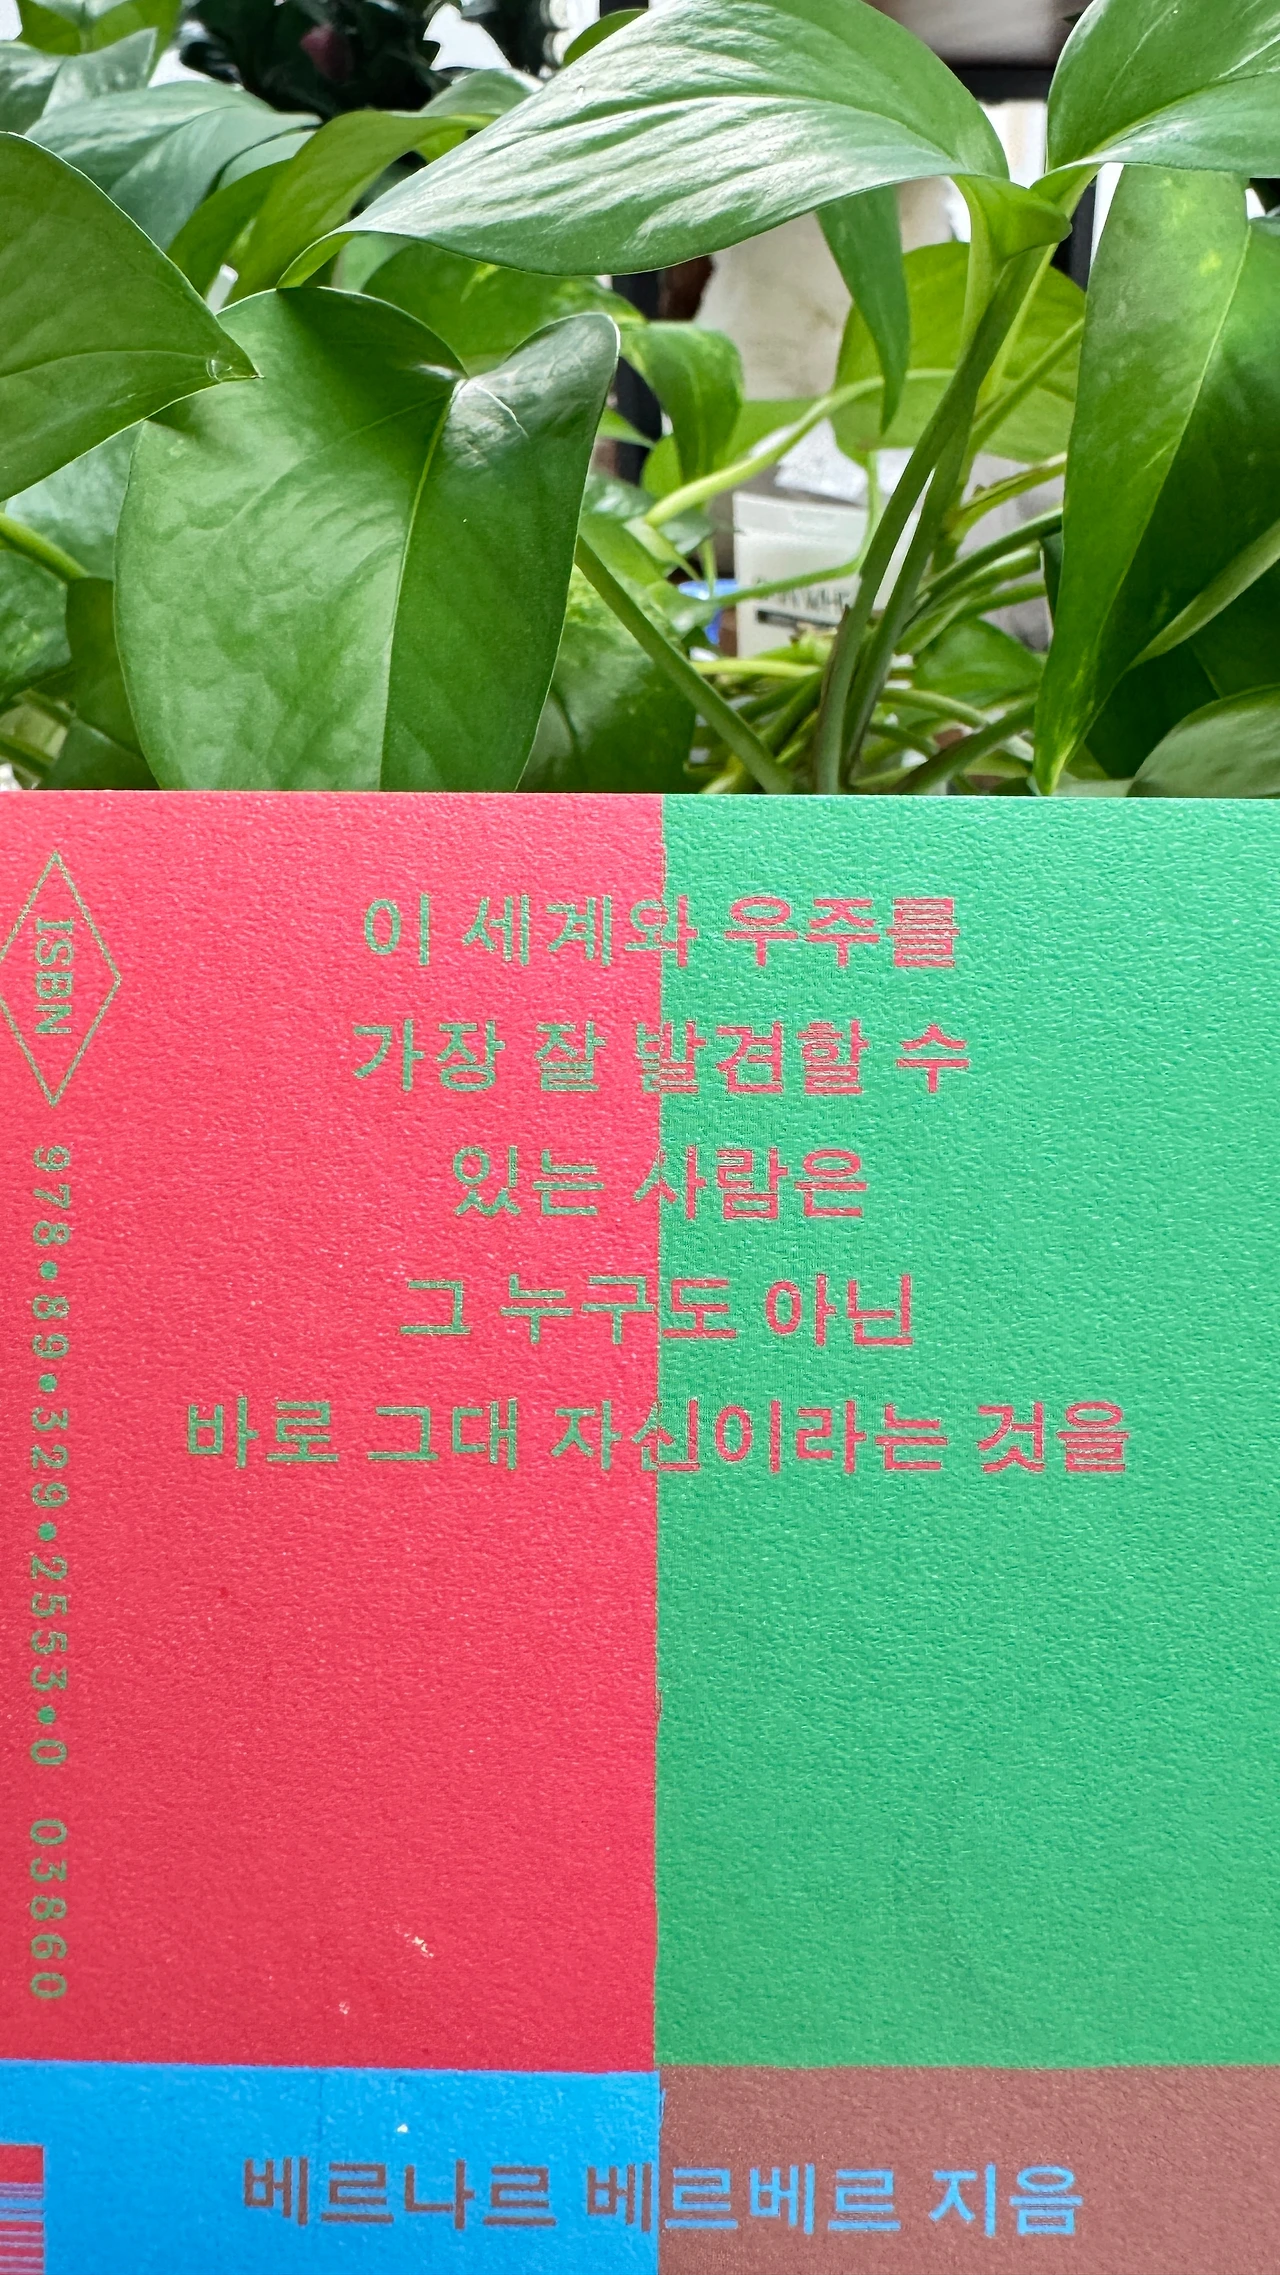 이 세계와 우주를
가장 잘 발견할 수
있는 사람은
그 누구도 아닌
바로 그대 자신이라는 것을
ISBN 978•89•329•2553•0 03860
베르나르 베르베르 지음